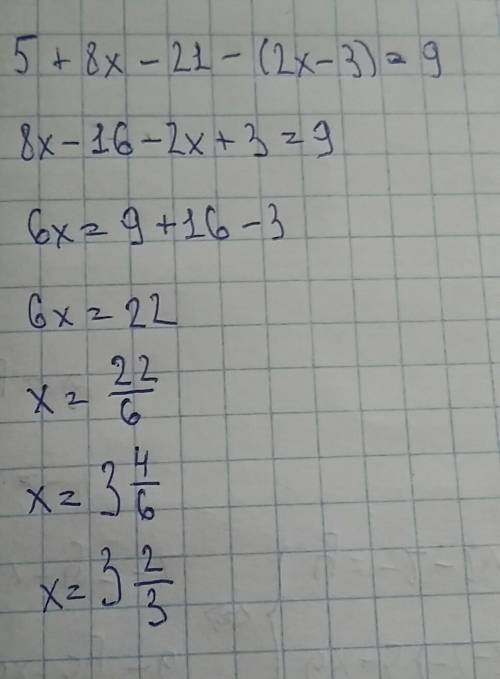 5 + 8x - 21 - (2x - 3) = 9
8x - 16 - 2x + 3 = 9
6x = 9 + 16 - 3
6x = 22
x = 22/6
x = 3 4/6
x = 3 2/3